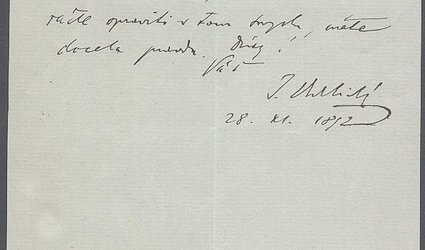 ráčte opraviti v tom smyslu, máte
docela pravdu. Díky!
Váš
J. Vrchlický
28. XI. 1892